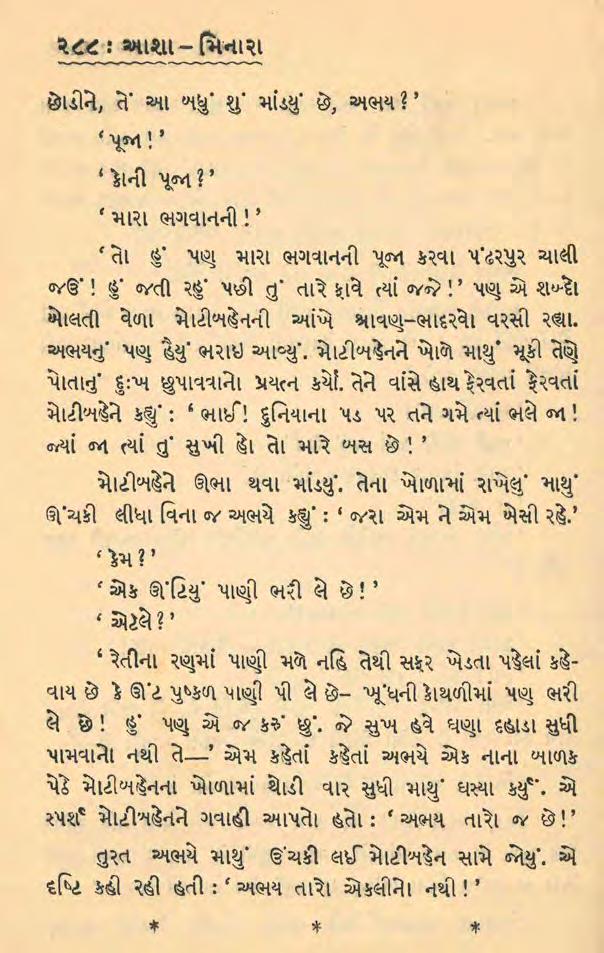 ૨૮૮ : આશા – મિનારા
છોડીને, તેં આ બધું શું માંડ્યું છે, અભય ? ’
‘ પૂજા ! ’
‘ કોની પૂજા ? ’
‘ મારા ભગવાનની ! ’
‘ તો હું પણ મારા ભગવાનની પૂજા કરવા પંઢરપુર ચાલી
જઉં ! હું જતી રહું પછી તું તારે ફાવે ત્યાં જજે ! ’ પણ એ શબ્દો
બોલતી વેળા મોટીબહેનની આંખે શ્રાવણ–ભાદરવો વરસી રહ્યા.
અભયનું પણ હૈયું ભરાઇ આવ્યું. મોટીબહેનને ખોળે માથું મૂકી તેણે
પોતાનું દુઃખ છુપાવવાનો પ્રયત્ન કર્યો. તેને વાંસે હાથ ફેરવતાં ફેરવતાં
મોટીબહેને કહ્યું : ‘ ભાઈ! દુનિયાના પડ પર તને ગમે ત્યાં ભલે જા !
જ્યાં જા ત્યાં તું સુખી હો તો મારે બસ છે ! ’
મોટીબહેને ઊભા થવા માંડ્યું. તેના ખોળામાં રાખેલું માથું
ઊંચકી લીધા વિના જ અભયે કહ્યું : ‘ જરા એમ ને એમ બેસી રહે.’
‘ કેમ ? ’
‘ એક ઊંટિયું પાણી ભરી લે છે ! ’
‘ એટલે ? ’
‘ રેતીના રણુમાં પાણી મળે નહિ તેથી સફર ખેડતા પહેલાં કહે-
વાય છે કે ઊંટ પુષ્કળ પાણી પી લે છે– ખૂંધની કોથળીમાં પણ ભરી
લે છે ! હું પણ એ જ કરું છું. જે સુખ હવે ઘણા દહાડા સુધી
પામવાનો નથી તે—’ એમ કહેતાં કહેતાં અભયે એક નાના બાળક
પેઠે મોટીબહેનના ખોળામાં થોડી વાર સુધી માથું ઘસ્યા કર્યું. એ
સ્પર્શ મોટીબહેનને ગવાહી આપતો હતો : ‘ અભય તારો જ છે ! ’
તુરત અભયે માથું ઉંચકી લઈ મોટીબહેન સામે જોયું. એ
દષ્ટિ કહી રહી હતી : ‘ અભય તારો એકલીનો નથી ! ’
* * *